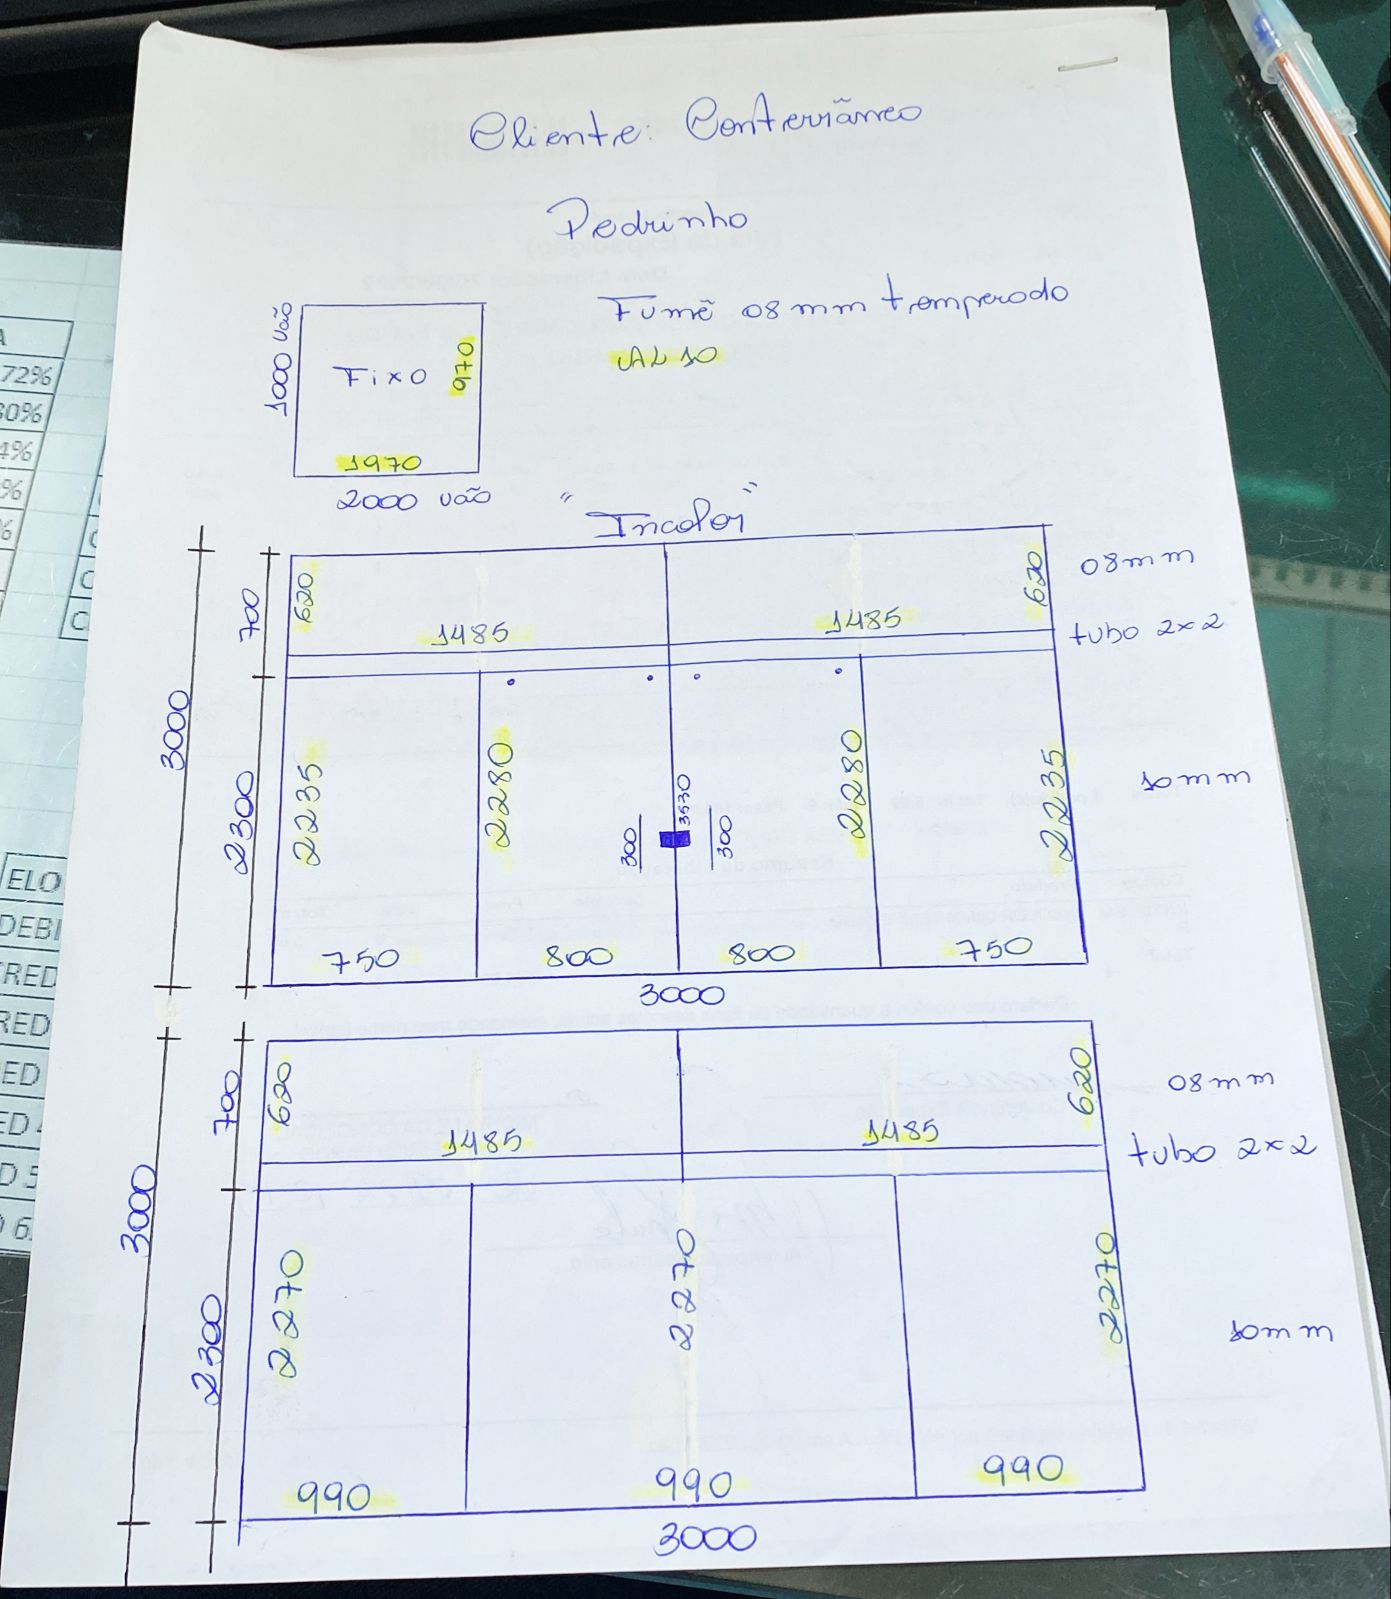 Cliente: Conterrâneo
Pedrinho
Fumê 08mm temperado
AL 10
1000 vão
Fixo
970
1970
2000 vão
"Incolor"
620
620
08mm
700
1485
1485
tubo 2x2
3000
2300
2235
2280
2280
2235
3530
300
300
10mm
750
800
800
750
3000
620
620
08mm
700
1485
1485
tubo 2x2
3000
2300
2270
2270
2270
10mm
990
990
990
3000
A
72%
30%
4%
%
%
C
C
C
ELO
DEBI
CRED
RED
ED
ED 4
D 5
6